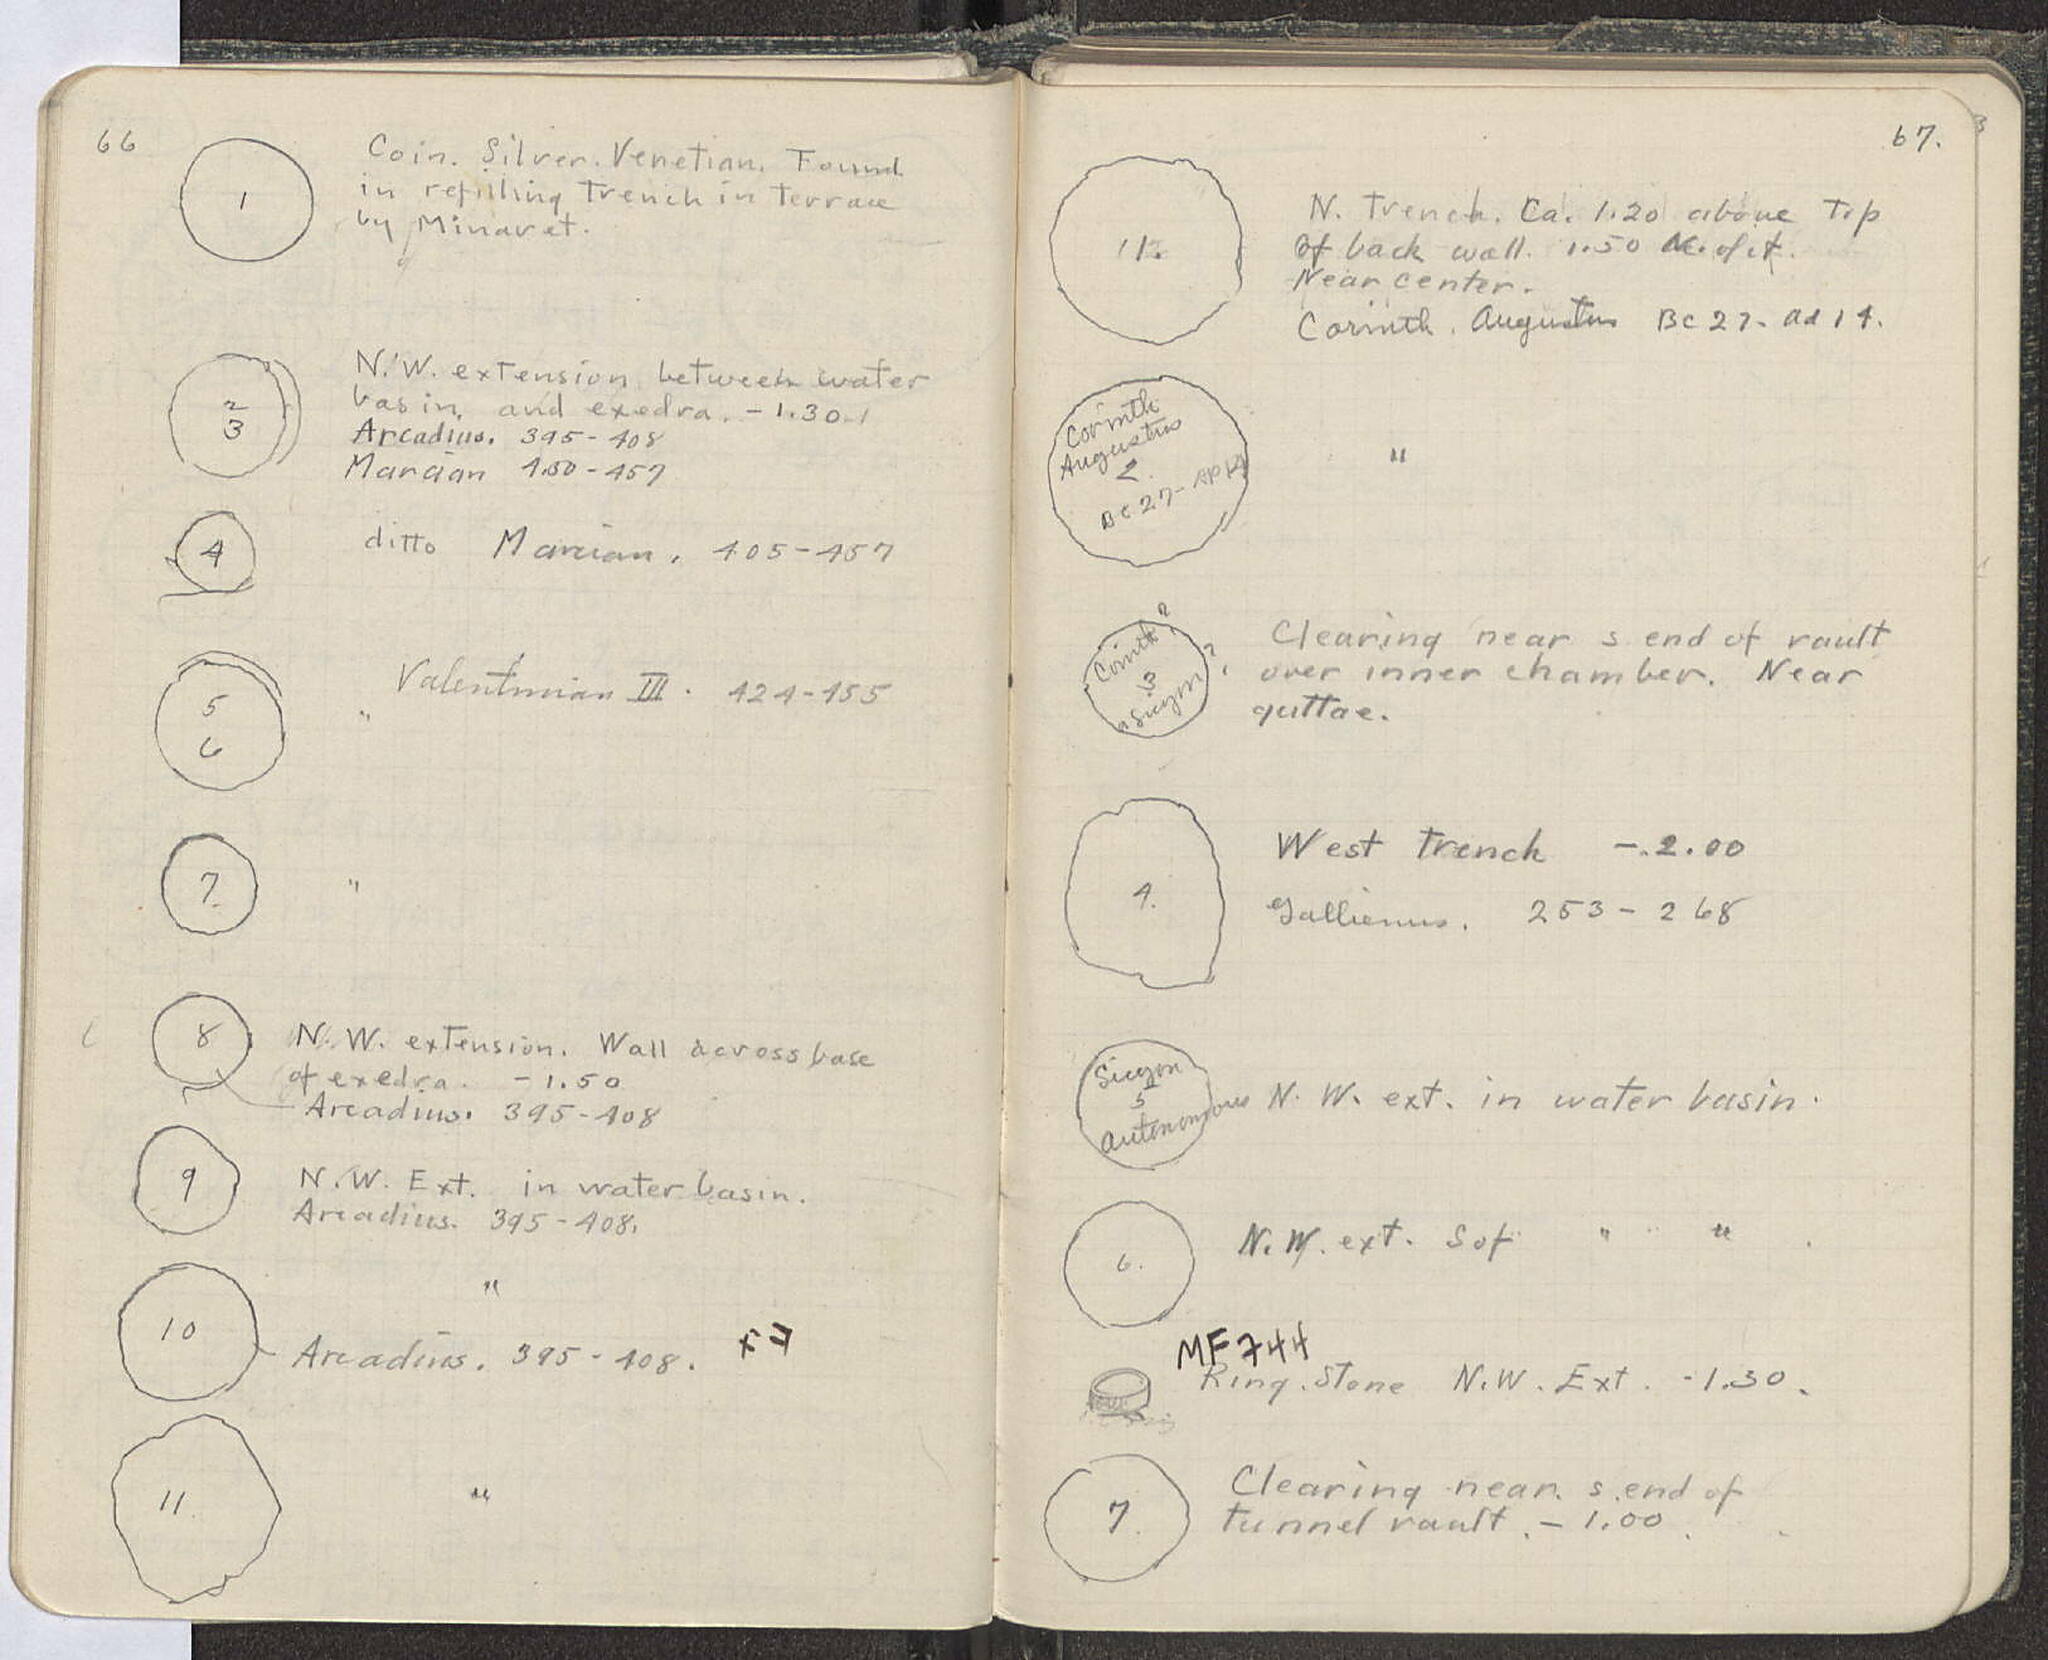 66
1
Coin. Silver. Venetian. Found
in refilling trench in terrace
by Minaret.
2
3
N.W. extension between water
basin, and exedra. -1.30
Arcadius. 395-408
Marcian 450-457
4
ditto Marcian. 405-457
5
6
Valentinian III. 424-455
"
7.
"
8
N.W. extension. Wall across base
of exedra. -1.50
Arcadius. 395-408
9
N.W. Ext. in water basin.
Arcadius. 395-408.
10
"
Arcadius. 395-408.
11
"
67.
N. trench. Ca. 1.20 above top
of back wall. 1.50 N. of it.
Near center.
Corinth. Augustus BC 27- AD 14.
Corinth
Augustus
2.
BC 27- AD 14
"
Corinth?
3
Sicyon?
Clearing near s end of vault
over inner chamber. Near
guttae.
4.
West trench -.2.00
Gallienus. 253-268
Sicyon
5
Autonomous
N.W. ext. in water basin.
6.
N.W. ext. S of " "
MF 744
Ring. Stone N.W. Ext. -1.30.
7.
Clearing near s. end of
tunnel vault. -1.00